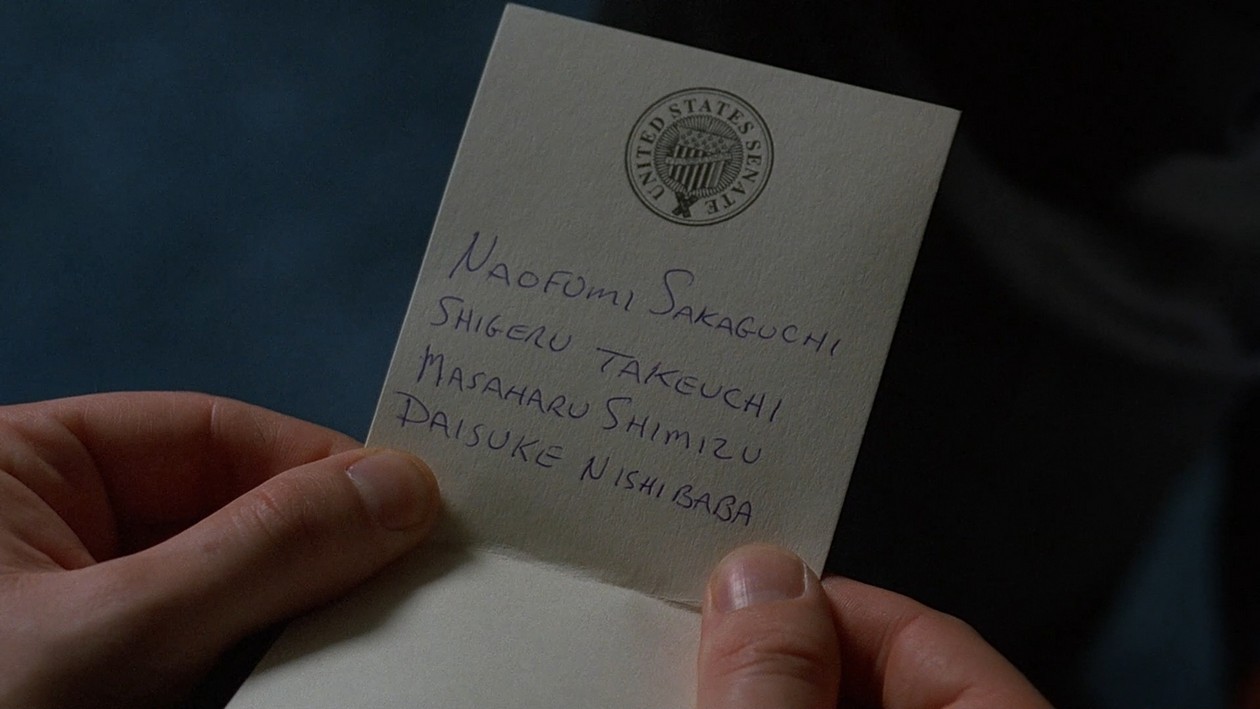 UNITED STATES SENATE
NAOFUMI SAKAGUCHI
SHIGERU TAKEUCHI
MASAHARU SHIMIZU
DAISUKE NISHIBABA